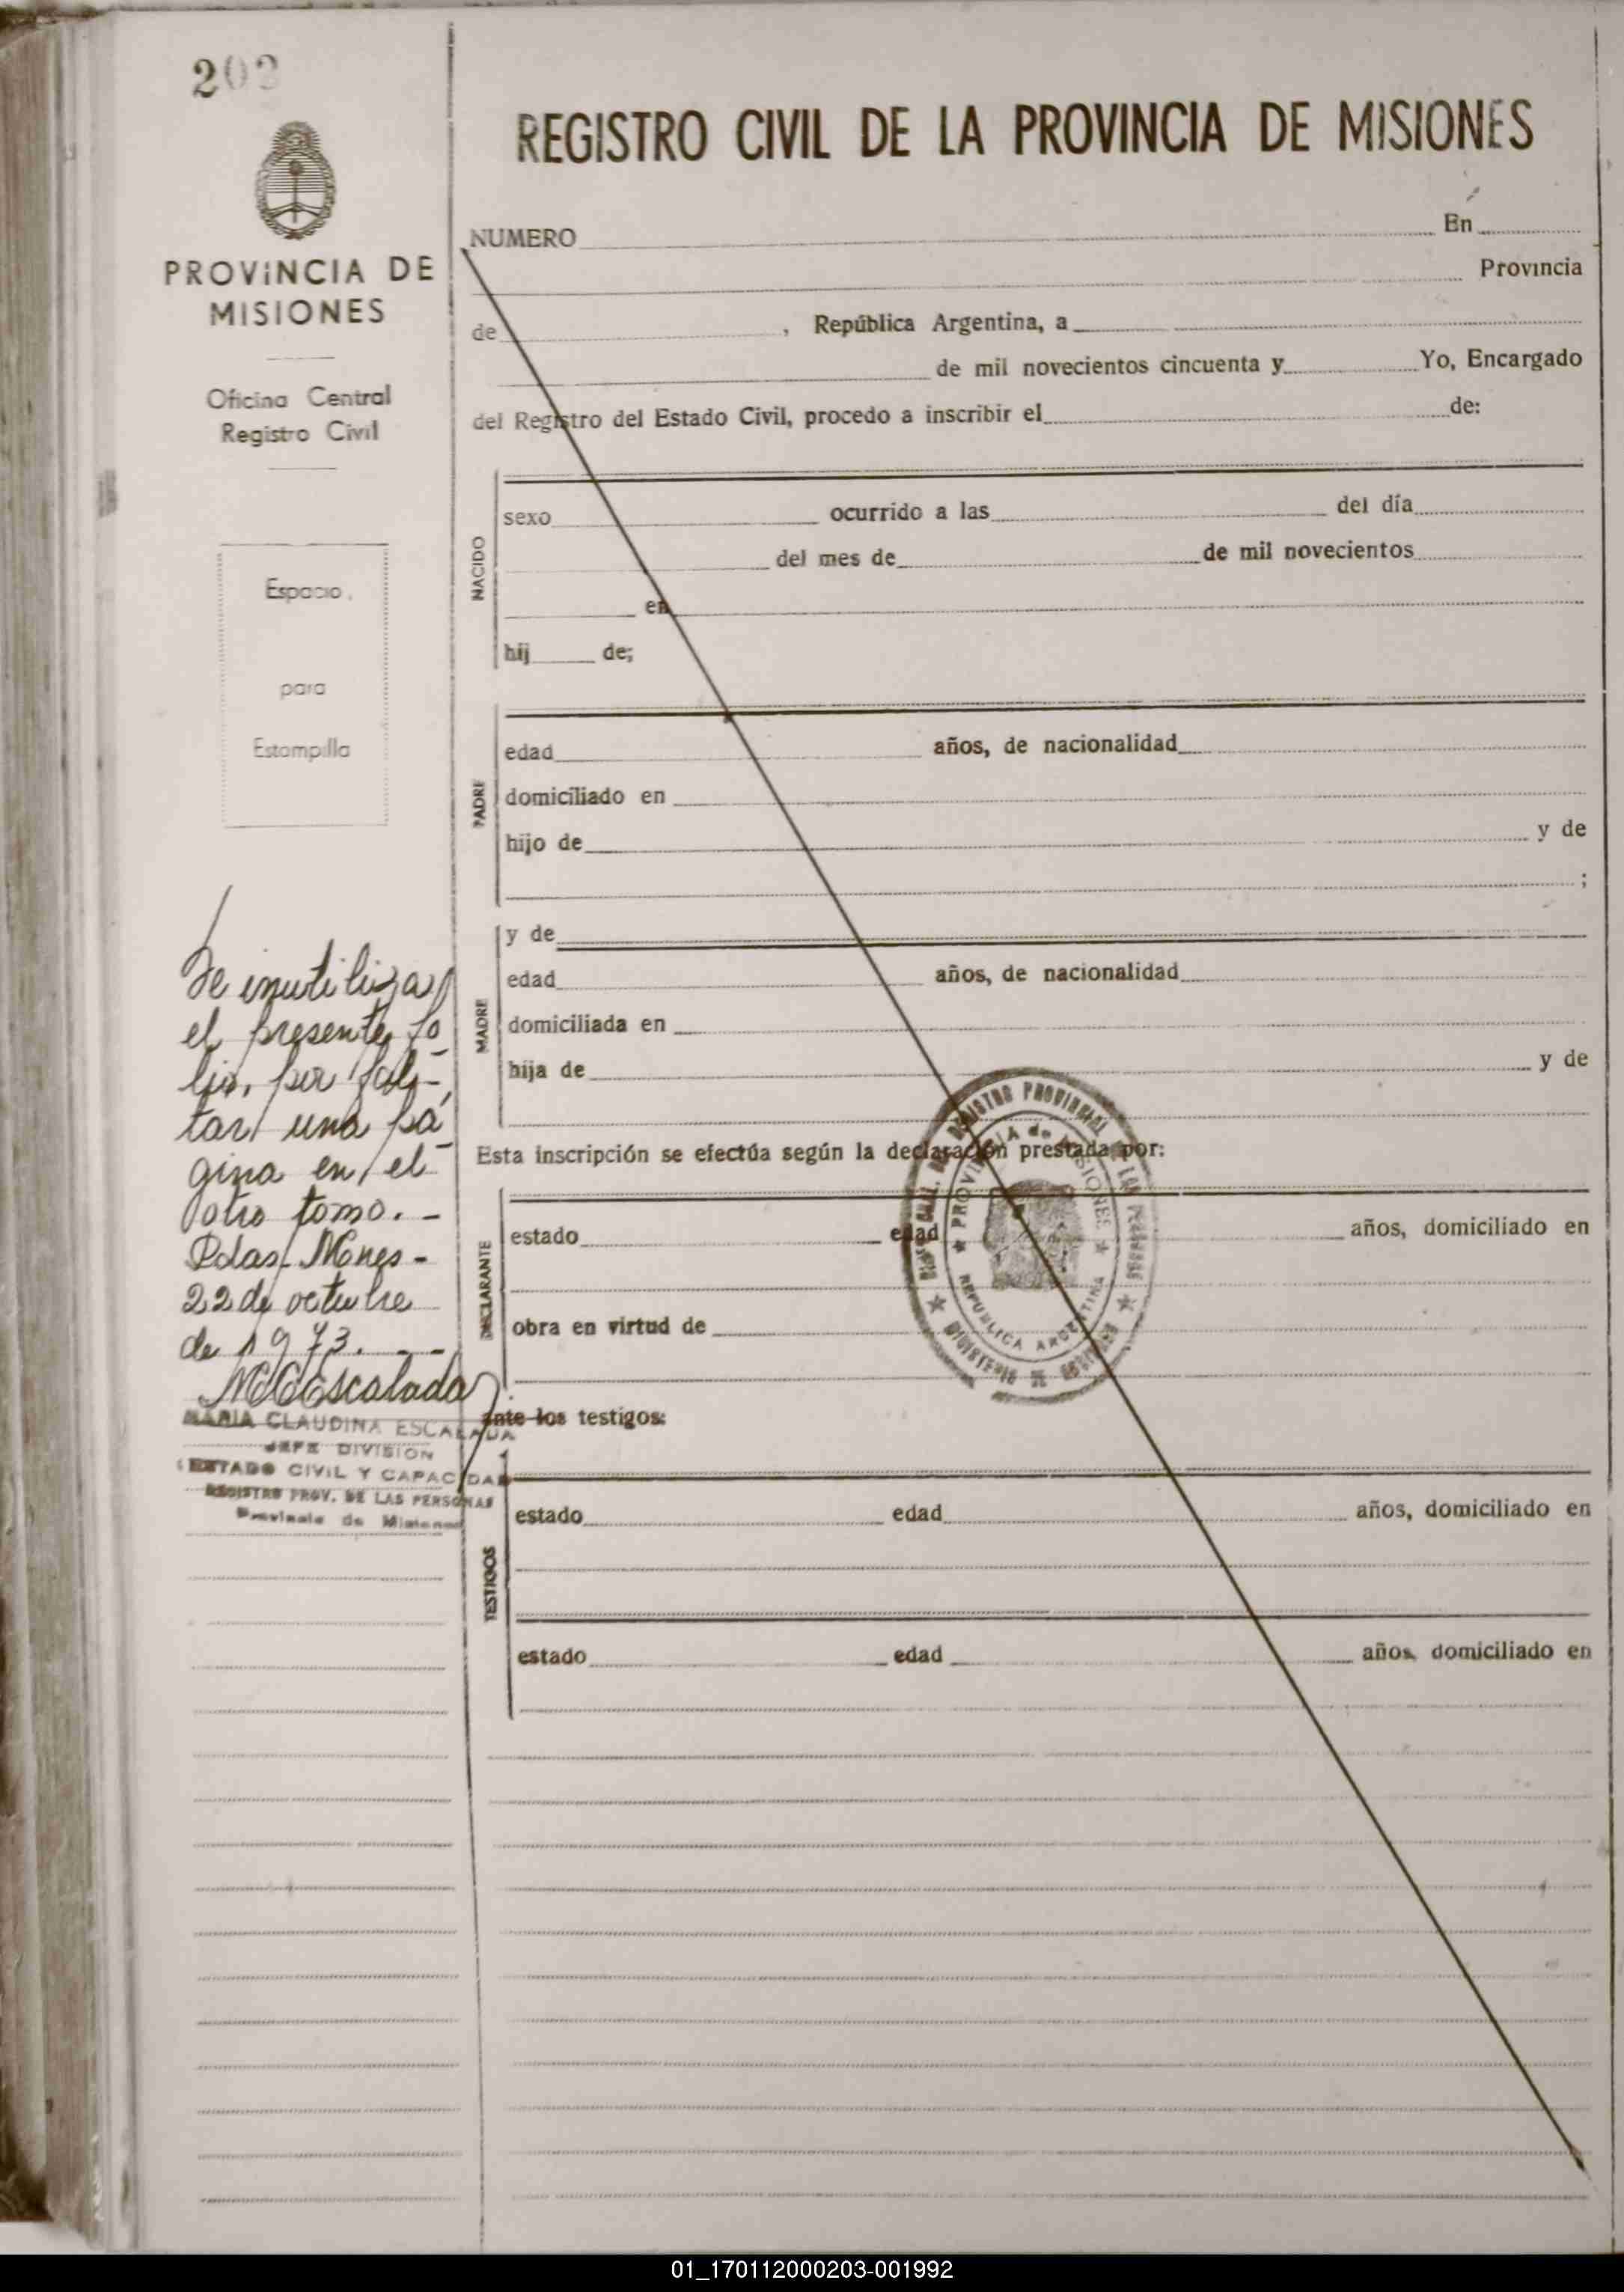 202
PROVINCIA DE
MISIONES
Oficina Central
Registro Civil
Espacio
para
Estampilla
Se inutiliza
el presente fo
lio, por fal-
tar una pá
gina en el
otro tomo. -
Pdas. Mnes -
22 de octubre
de 1973. - -
MCEscalada
MARIA CLAUDINA ESCALADA
JEFE DIVISION
ESTADO CIVIL Y CAPACIDAD
REGISTRO PROV. DE LAS PERSONAS
Provincia de Misiones
REGISTRO CIVIL DE LA PROVINCIA DE MISIONES
NUMERO En
Provincia
de , República Argentina, a
de mil novecientos cincuenta y Yo, Encargado
del Registro del Estado Civil, procedo a inscribir el de:
NACIDO
sexo ocurrido a las del día
del mes de de mil novecientos
en
hij de;
PADRE
edad años, de nacionalidad
domiciliado en
hijo de y de
;
MADRE
y de
edad años, de nacionalidad
domiciliada en
hija de y de
Esta inscripción se efectúa según la declaración prestada por:
DECLARANTE
estado edad años, domiciliado en
obra en virtud de
REGISTRO PROVINCIAL DE LAS PERSONAS
MINISTERIO DE GOBIERNO
PROVINCIA de MISIONES
REPUBLICA ARGENTINA
ante los testigos:
TESTIGOS
estado edad años, domiciliado en
estado edad años, domiciliado en
01_170112000203-001992